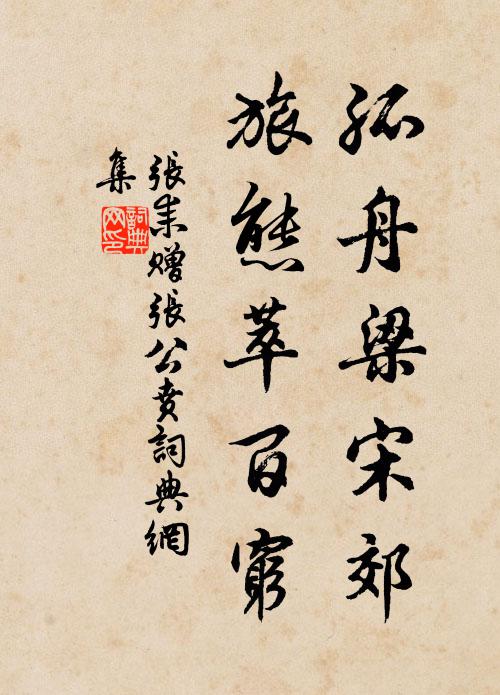 孤舟梁宋郊
旅態萃百窮
張耒贈張公賁詞典網
集
詞典
网印